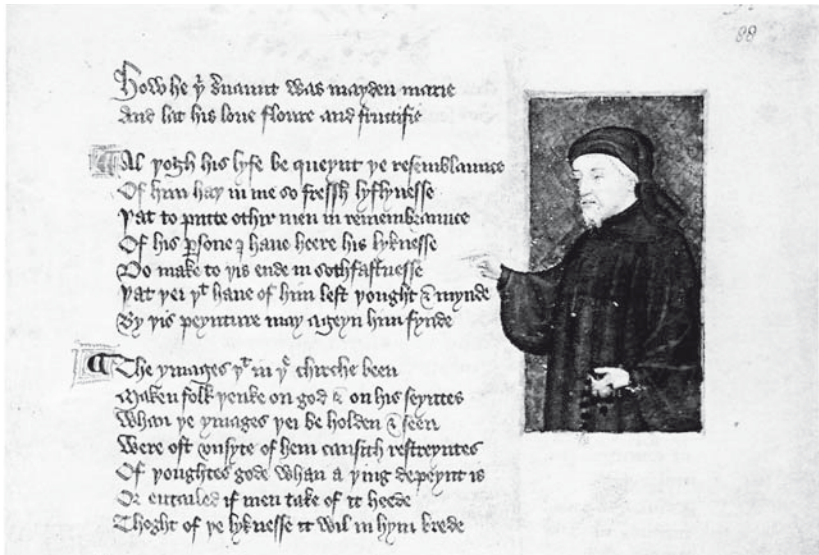 88
How he yͬ s̉uaunt was mayden marie
And lat his loue floure and fructifie
Al yogh his lyfe be queynt ye resemblaunce
Of him hay in me so fressh lyflynesse
Yat to putte othir men in remembraunce
Of his ꝑsone I haue heere his lyknesse
Do make to yis ende in sothfastnesse
Yat yei yͭ haue of him left yought & mynde
By yis peynture may ageyn him fynde
The ymages yͭ in yͤ chirche been
Maken folk yenke on god & on his seyntes
Whan ye ymages yei be holden & seen
Were oft vnsyte of hem causith restreyntes
Of youghtes gode whan a ying depeynt is
Or entailed if men take of it heede
Thoght of ye lyknesse it wil in hym brede